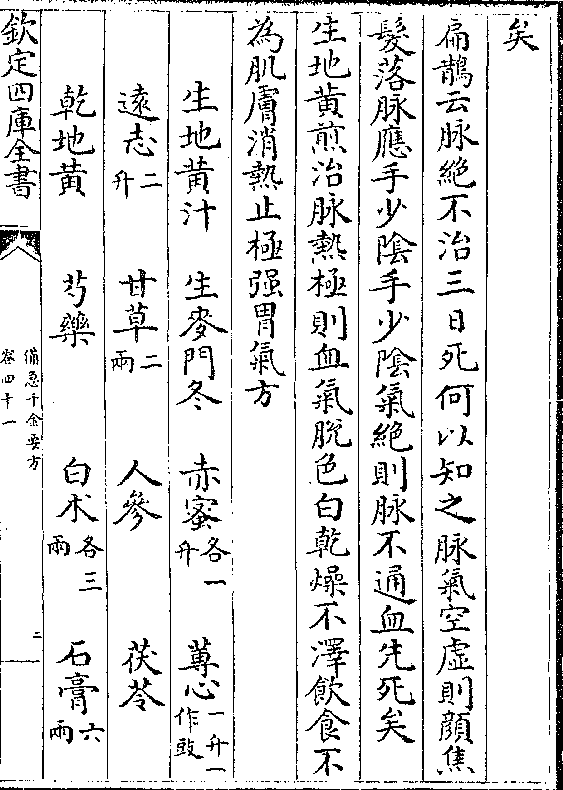 矣
扁鵲云脉絶不治三日死何以知之脉氣空虛則顔焦
髮落脉應手少隂手少隂氣絶則脉不通血先死矣
生地黄煎治脉熱極則血氣脫色白乾燥不澤飲食不
為肌膚消熱止極强胃氣方
生地黄汁 生麥門冬 赤蜜各一升 蓴心一升一作豉
遠志二升 甘草二兩 人參 茯苓
乾地黄 芍藥 白术各三兩 石膏六兩
欽定四庫全書
備急千金要方
卷四十一
二